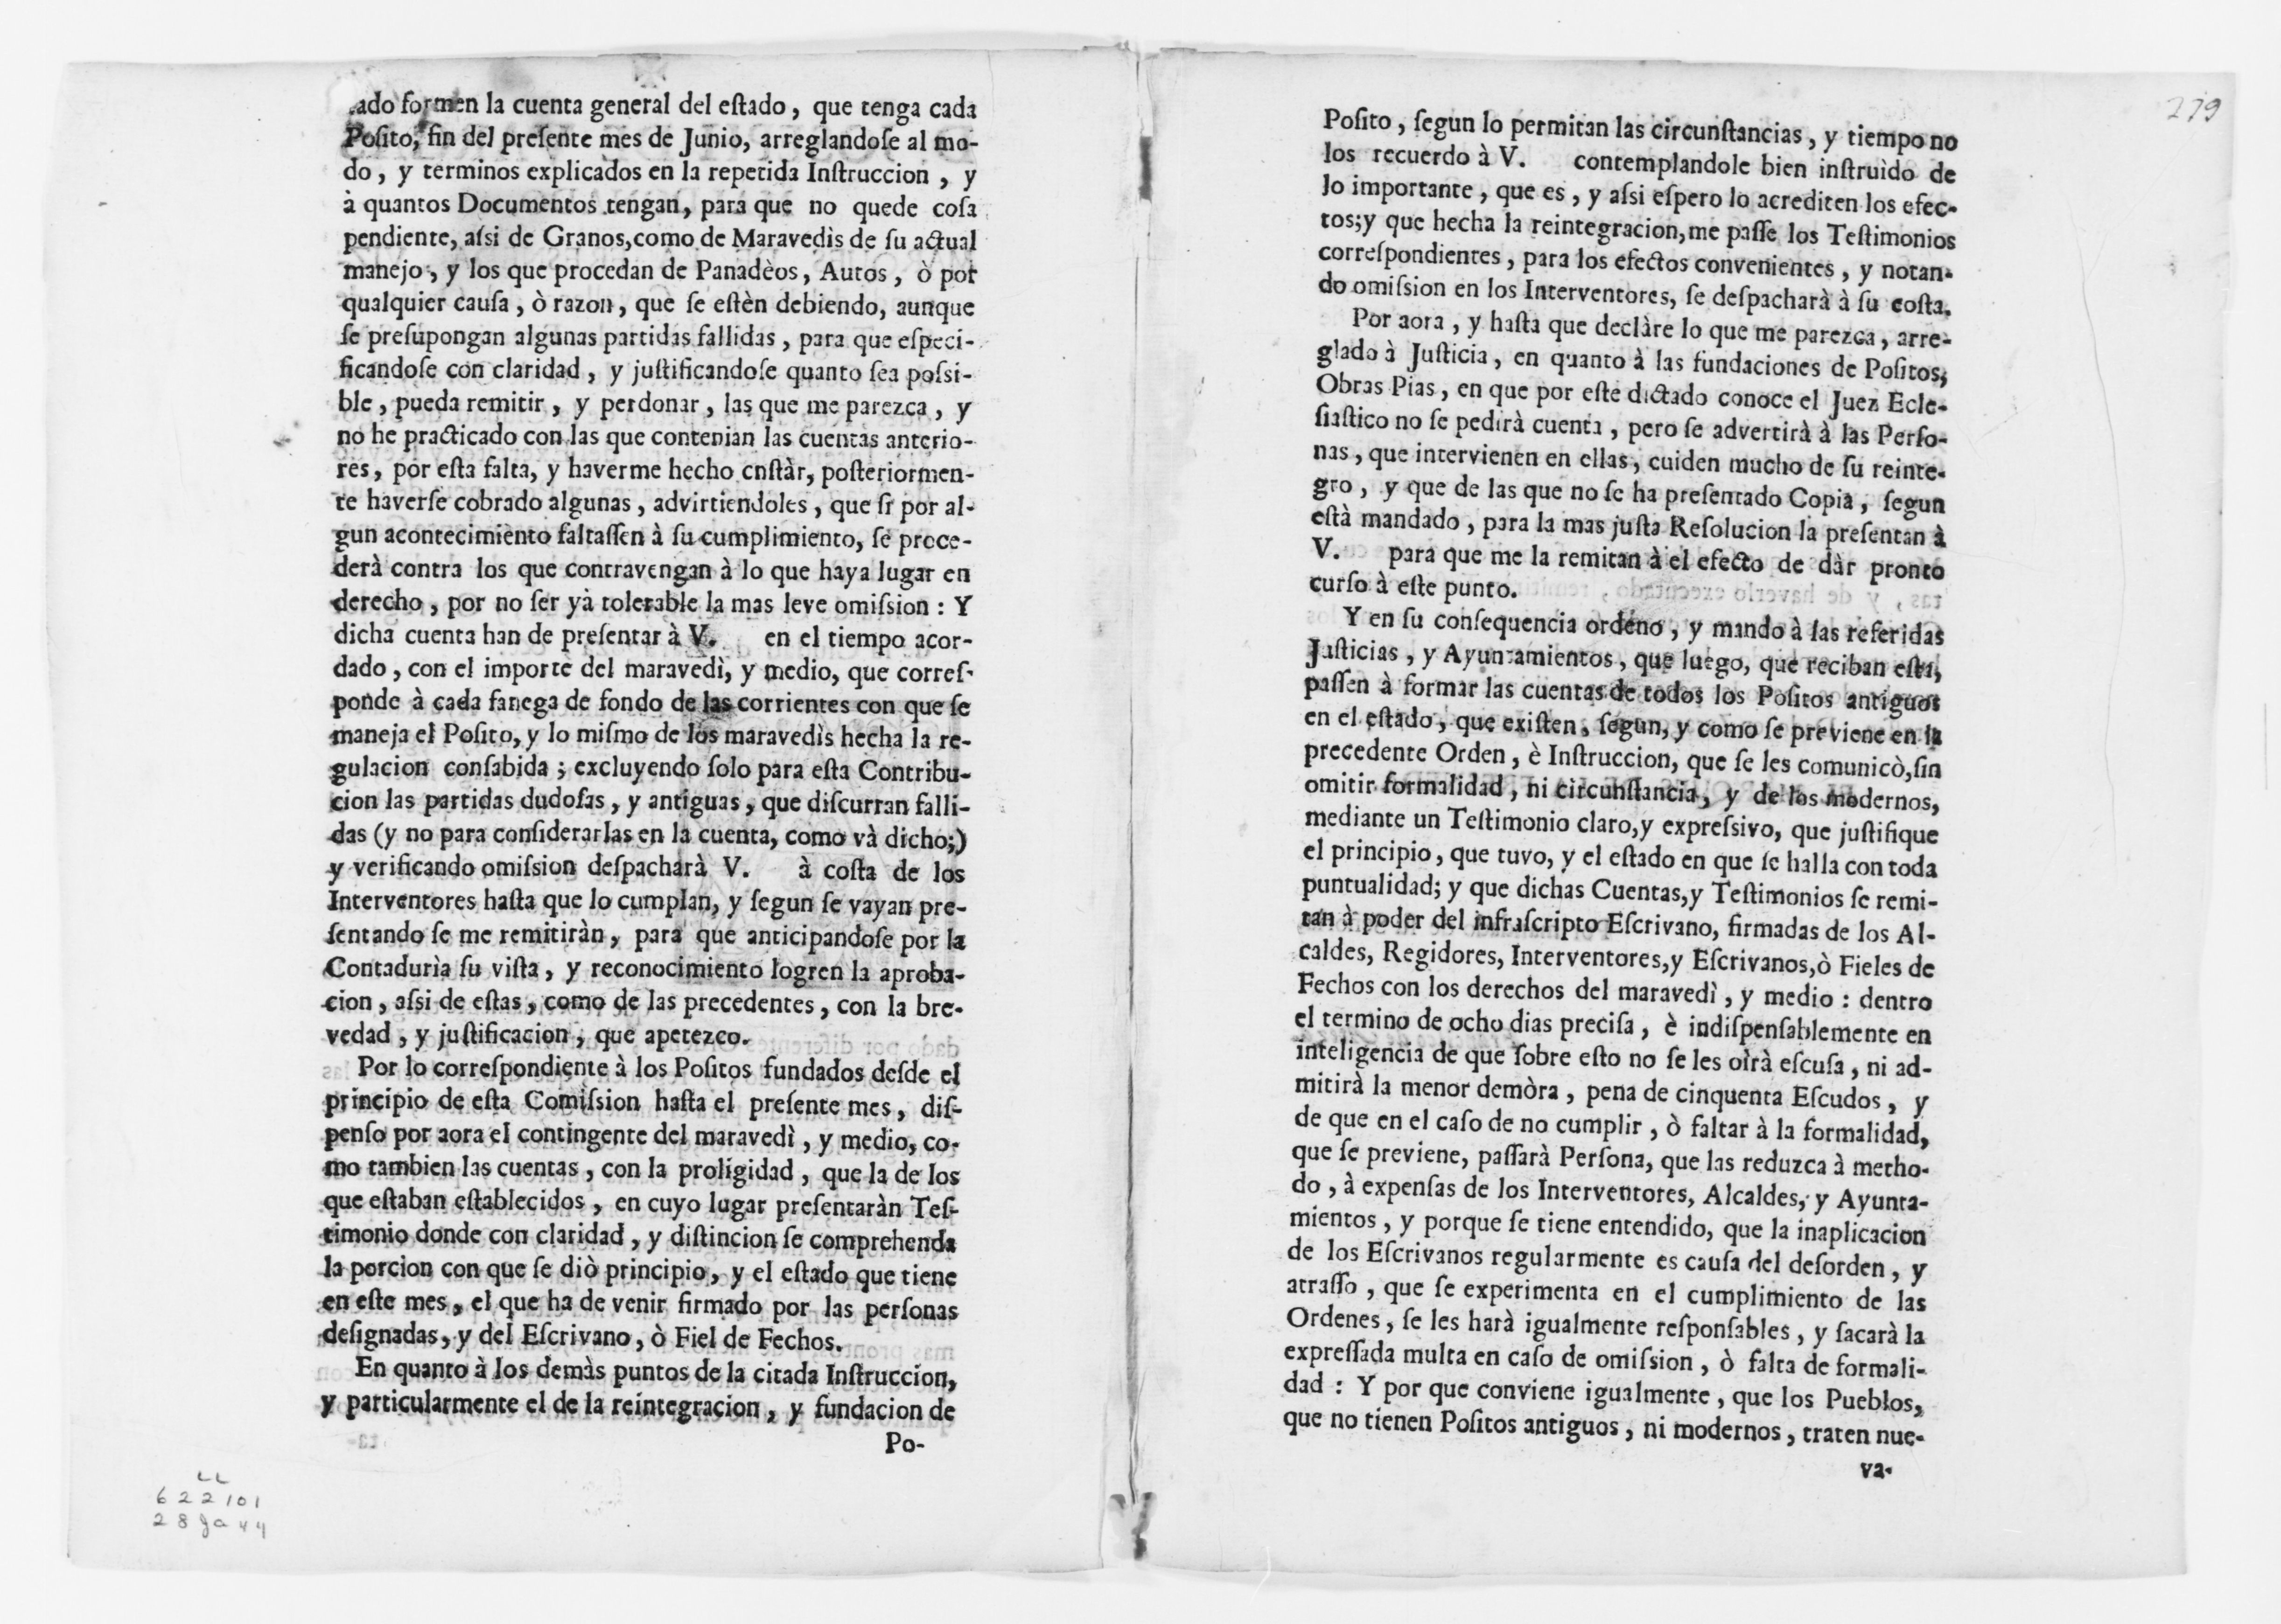 tado formen la cuenta general del eſtado, que tenga cada
Poſito, fin del preſente mes de Junio, arreglandoſe al mo-
do, y terminos explicados en la repetida Inſtruccion, y
à quantos Documentos tengan, para que no quede coſa
pendiente, aſsi de Granos, como de Maravedìs de ſu actual
manejo, y los que procedan de Panadèos, Autos, ò por
qualquier cauſa, ò razon, que ſe eſtèn debiendo, aunque
ſe preſupongan algunas partidas fallidas, para que eſpeci-
ficandoſe con claridad, y juſtificandoſe quanto ſea poſsi-
ble, pueda remitir, y perdonar, las que me parezca, y
no he practicado con las que contenian las cuentas anterio-
res, por eſta falta, y haverme hecho cnſtàr, poſteriormen-
te haverſe cobrado algunas, advirtiendoles, que ſi por al-
gun acontecimiento faltaſſen à ſu cumplimiento, ſe proce-
derà contra los que contravengan à lo que haya lugar en
derecho, por no ſer yà tolerable la mas leve omiſsion: Y
dicha cuenta han de preſentar à V. en el tiempo acor-
dado, con el importe del maravedì, y medio, que correſ-
ponde à cada fanega de fondo de las corrientes con que ſe
maneja el Poſito, y lo miſmo de los maravedìs hecha la re-
gulacion conſabida; excluyendo ſolo para eſta Contribu-
cion las partidas dudoſas, y antiguas, que diſcurran falli-
das (y no para conſiderarlas en la cuenta, como và dicho;)
y verificando omiſsion deſpacharà V. à coſta de los
Interventores haſta que lo cumplan, y ſegun ſe vayan pre-
ſentando ſe me remitiràn, para que anticipandoſe por la
Contadurìa ſu viſta, y reconocimiento logren la aproba-
cion, aſsi de eſtas, como de las precedentes, con la bre-
vedad, y juſtificacion, que apetezco.
Por lo correſpondiente à los Poſitos fundados deſde el
principio de eſta Comiſsion haſta el preſente mes, diſ-
penſo por aora el contingente del maravedì, y medio, co-
mo tambien las cuentas, con la proligidad, que la de los
que eſtaban eſtablecidos, en cuyo lugar preſentaràn Teſ-
timonio donde con claridad, y diſtincion ſe comprehenda
la porcion con que ſe diò principio, y el eſtado que tiene
en eſte mes, el que ha de venir firmado por las perſonas
deſignadas, y del Eſcrivano, ò Fiel de Fechos.
En quanto à los demàs puntos de la citada Inſtruccion,
y particularmente el de la reintegracion, y fundacion de
Po-
LL
622101
28 Ja 44
279
Poſito, ſegun lo permitan las circunſtancias, y tiempo no
los recuerdo à V. contemplandole bien inſtruìdo de
lo importante, que es, y aſsi eſpero lo acrediten los efec-
tos; y que hecha la reintegracion, me paſſe los Teſtimonios
correſpondientes, para los efectos convenientes, y notan-
do omiſsion en los Interventores, ſe deſpacharà à ſu coſta.
Por aora, y haſta que declàre lo que me parezca, arre-
glado à Juſticia, en quanto à las fundaciones de Poſitos,
Obras Pias, en que por eſte dictado conoce el Juez Ecle-
ſiaſtico no ſe pedirà cuenta, pero ſe advertirà à las Perſo-
nas, que intervienen en ellas, cuiden mucho de ſu reinte-
gro, y que de las que no ſe ha preſentado Copia, ſegun
eſtà mandado, para la mas juſta Reſolucion la preſentan à
V. para que me la remitan à el efecto de dàr pronto
curſo à eſte punto.
Y en ſu conſequencia ordeno, y mando à las referidas
Juſticias, y Ayuntamientos, que luego, que reciban eſta,
paſſen à formar las cuentas de todos los Poſitos antiguos
en el eſtado, que exiſten, ſegun, y como ſe previene en la
precedente Orden, è Inſtruccion, que ſe les comunicò, ſin
omitir formalidad, ni circunſtancia, y de los modernos,
mediante un Teſtimonio claro, y expreſsivo, que juſtifique
el principio, que tuvo, y el eſtado en que ſe halla con toda
puntualidad; y que dichas Cuentas, y Teſtimonios ſe remi-
tan à poder del infraſcripto Eſcrivano, firmadas de los Al-
caldes, Regidores, Interventores, y Eſcrivanos, ò Fieles de
Fechos con los derechos del maravedì, y medio: dentro
el termino de ocho dias preciſa, è indiſpenſablemente en
inteligencia de que ſobre eſto no ſe les oìrà eſcuſa, ni ad-
mitirà la menor demòra, pena de cinquenta Eſcudos, y
de que en el caſo de no cumplir, ò faltar à la formalidad,
que ſe previene, paſſarà Perſona, que las reduzca à metho-
do, à expenſas de los Interventores, Alcaldes, y Ayunta-
mientos, y porque ſe tiene entendido, que la inaplicacion
de los Eſcrivanos regularmente es cauſa del deſorden, y
atraſſo, que ſe experimenta en el cumplimiento de las
Ordenes, ſe les harà igualmente reſponſables, y ſacarà la
expreſſada multa en caſo de omiſsion, ò falta de formali-
dad: Y por que conviene igualmente, que los Pueblos,
que no tienen Poſitos antiguos, ni modernos, traten nue-
va-